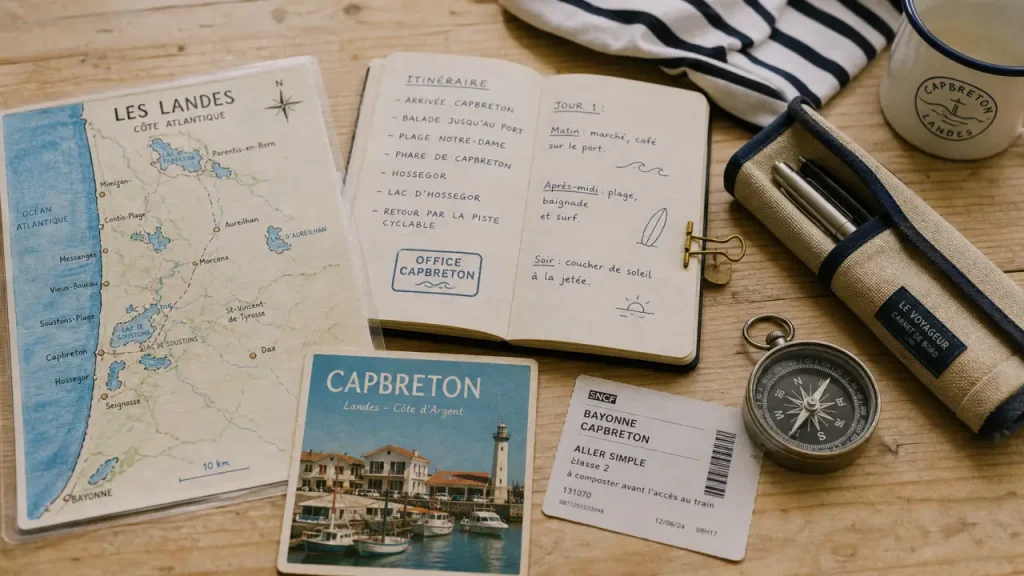 LES LANDES
CÔTE ATLANTIQUE
N
Parentis-en-Born
Mimizan-
OCÉAN
ATLANTIQUE
Contis-Plage
Aureilhan
LAC D'AUREILHAN
Messanges
Morcenx
Vieux-Boucau
St-Vincent
de-Tyrosse
Soustons-Plage
LAC DE
SOUSTONS
LAC DE SOUSTONS
Capbreton
Dax
Hossegor
Seignosse
10 km
BAYONNE
ITINÉRAIRE
- ARRIVÉE CAPBRETON
- BALADE JUSQU'AU PORT
- PLAGE NOTRE-DAME
- PHARE DE CAPBRETON
- HOSSEGOR
- LAC D'HOSSEGOR
- RETOUR PAR LA PISTE
CYCLABLE
OFFICE
CAPBRETON
JOUR 1 :
Matin : marché, café
sur le port.
Après-midi : plage,
baignade
et surf.
Soir : coucher de soleil
à la jetée.
CAPBRETON
LANDES
LE VOYAGEUR
CARNET DE BORD
CAPBRETON
Landes – Côte d'Argent
SNCF
BAYONNE
CAPBRETON
ALLER SIMPLE
classe 2
à composter avant l'accès au train
131070
12/06/24 08H17
N
E
S
W